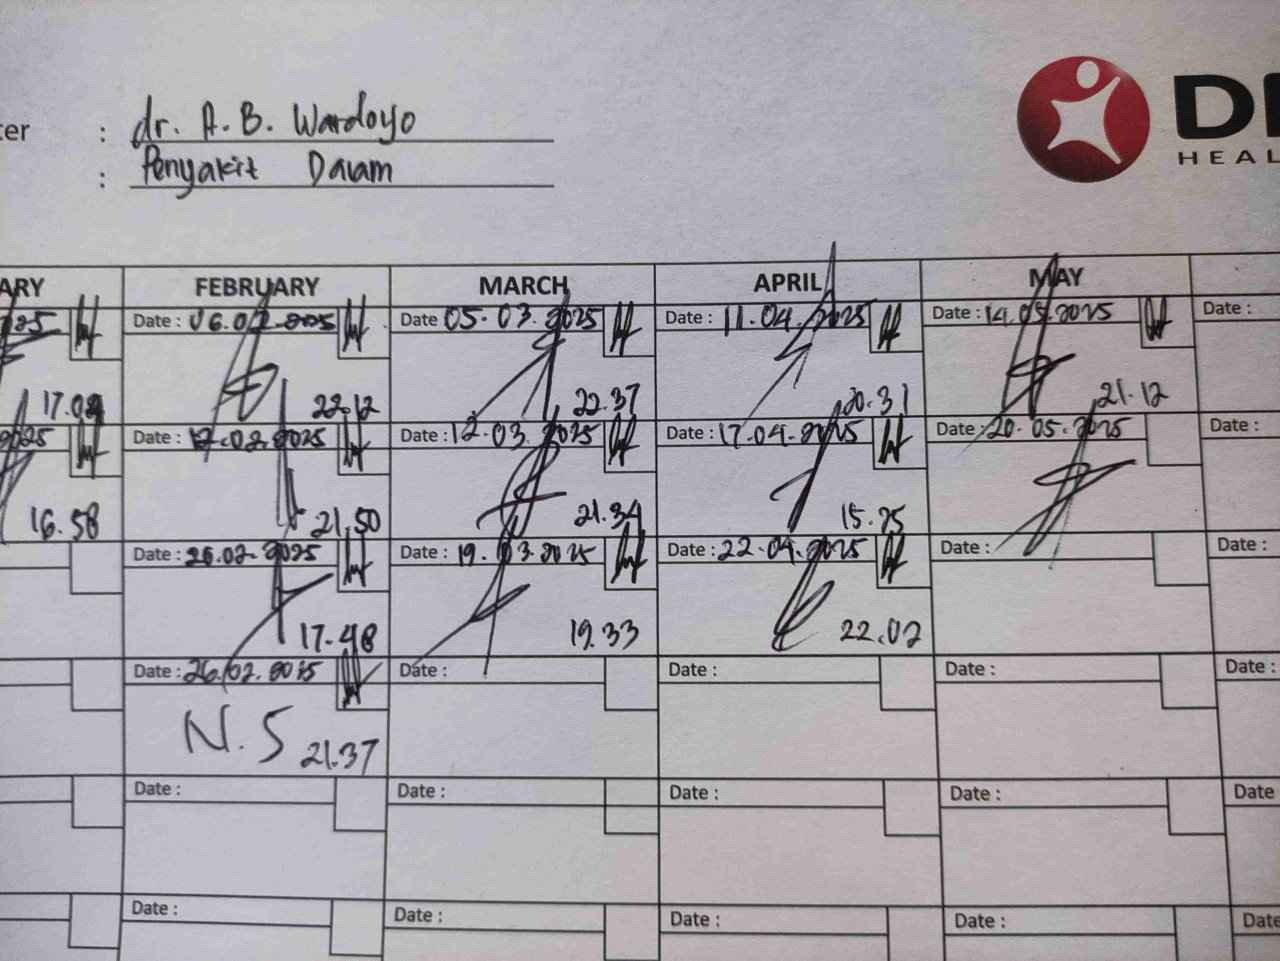 : dr. A. B. Wardoyo
: Penyakit Dalam
HEAL
FEBRUARY MARCH APRIL MAY
Date : 06.02.2025 Date 05.03.2025 Date : 11.04.2025 Date : 14.05.2025 Date :
22.12 22.37 20.31 21.12
Date : 12.02.2025 Date : 12.03.2025 Date : 17.04.2025 Date : 20.05.2025 Date :
16.58 21.50 21.34 15.25
Date : Date : 19.03.2025 Date : 22.04.2025 Date : Date :
17.48 19.33 22.02
Date : 26.02.2025 Date : Date : Date : Date :
N.S 21.37
Date : Date : Date : Date : Date
Date : Date : Date : Date : Date